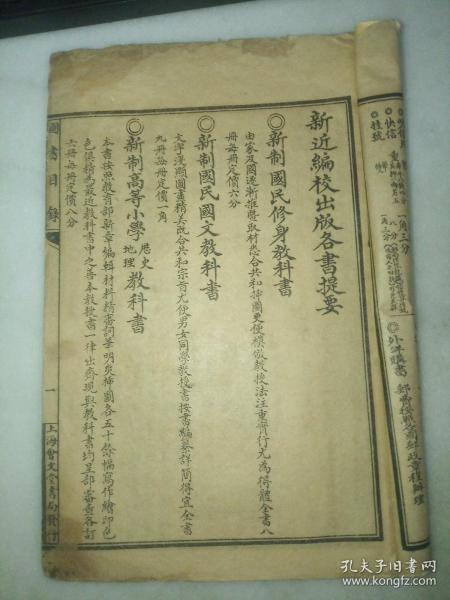 新近編校出版各書提要
◎新制國民修身教科書
由家及國逐漸推暨取材悉合共和揷圖更便模倣教授法注重實行尤為得體全書八
冊每冊定價六分
◎新制國民國文教科書
文字淺顯圖畫精美既合共和宗旨尤便男女同學教授書按書編纂詳簡得宜全書
九冊每冊定價一角
◎新制高等小學歷史地理教科書
本書按照教育部新章編輯材料精審詞筆明爽揷圖各五十餘幅寫作繪印色
色俱精為最近教科書中之善本教授書一律出齊現與教科書均呈部審查各訂
六冊每冊定價八分
圖書目錄
一
上海會文堂書局發行
快信
掛號
一角三分
◎外洋購書
郵費按照各國郵政章程辦理
孔夫子旧书网
www.kongfz.com